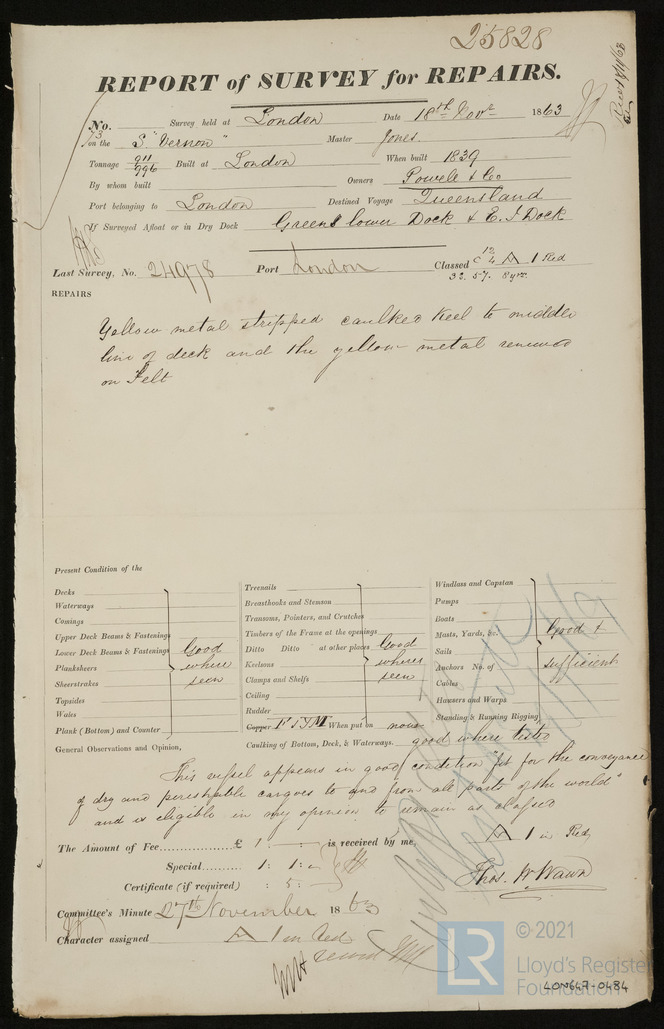 25828
REPORT of SURVEY for REPAIRS.
No. Survey held at London Date 18th Novr 1863
on the S "Vernon" Master Jones
Tonnage 911/996 Built at London When built 1839
By whom built Owners Powell & Co
Port belonging to London Destined Voyage Queensland
If Surveyed Afloat or in Dry Dock Greens lower Dock & E. I Dock
Last Survey, No. 24978 Port London Classed A 1 Red
32. 57. 8 yrs.
REPAIRS
Yellow metal stripped caulked keel to middle
line of deck and the yellow metal renewed
on Felt
Present Condition of the
Decks
Waterways
Comings
Upper Deck Beams & Fastenings
Lower Deck Beams & Fastenings
Planksheers
Sheerstrakes
Topsides
Wales
Plank (Bottom) and Counter
Good
where
seen
Treenails
Breasthooks and Stemson
Transoms, Pointers, and Crutches
Timbers of the Frame at the openings
Ditto Ditto at other places
Keelsons
Clamps and Shelfs
Ceiling
Rudder
Good
where
seen
Copper F & YM When put on now
Caulking of Bottom, Deck, & Waterways. good where tested
Windlass and Capstan
Pumps
Boats
Masts, Yards, &c.
Sails
Anchors No. of
Cables
Hawsers and Warps
Standing & Running Rigging
Good &
sufficient
General Observations and Opinion,
This vessel appears in good condition "fit for the conveyance
of dry and perishable cargoes to and from all parts of the world"
and is eligible in my opinion to remain as classed
A 1 in Red
The Amount of Fee £ 1 : is received by me,
Special 1 : 1 :
Certificate (if required) : 5 :
Thos. W Wawn
Committee's Minute 27th November 1863
Character assigned A 1 in Red
© 2021
LR
Lloyd's Register
Foundation
LON647-0484